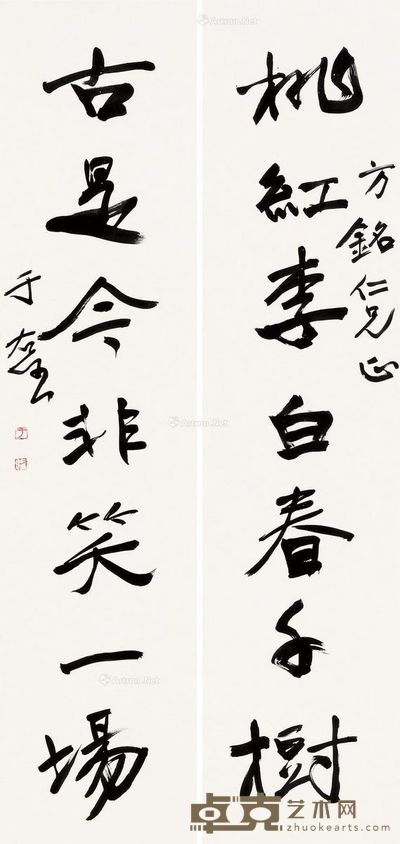 桃紅李白春千樹
方銘仁兄正
古是今非笑一場
于右任
Artron.Net
Artron.Net
Artron.Net
卓克艺术网
zhuokearts.com